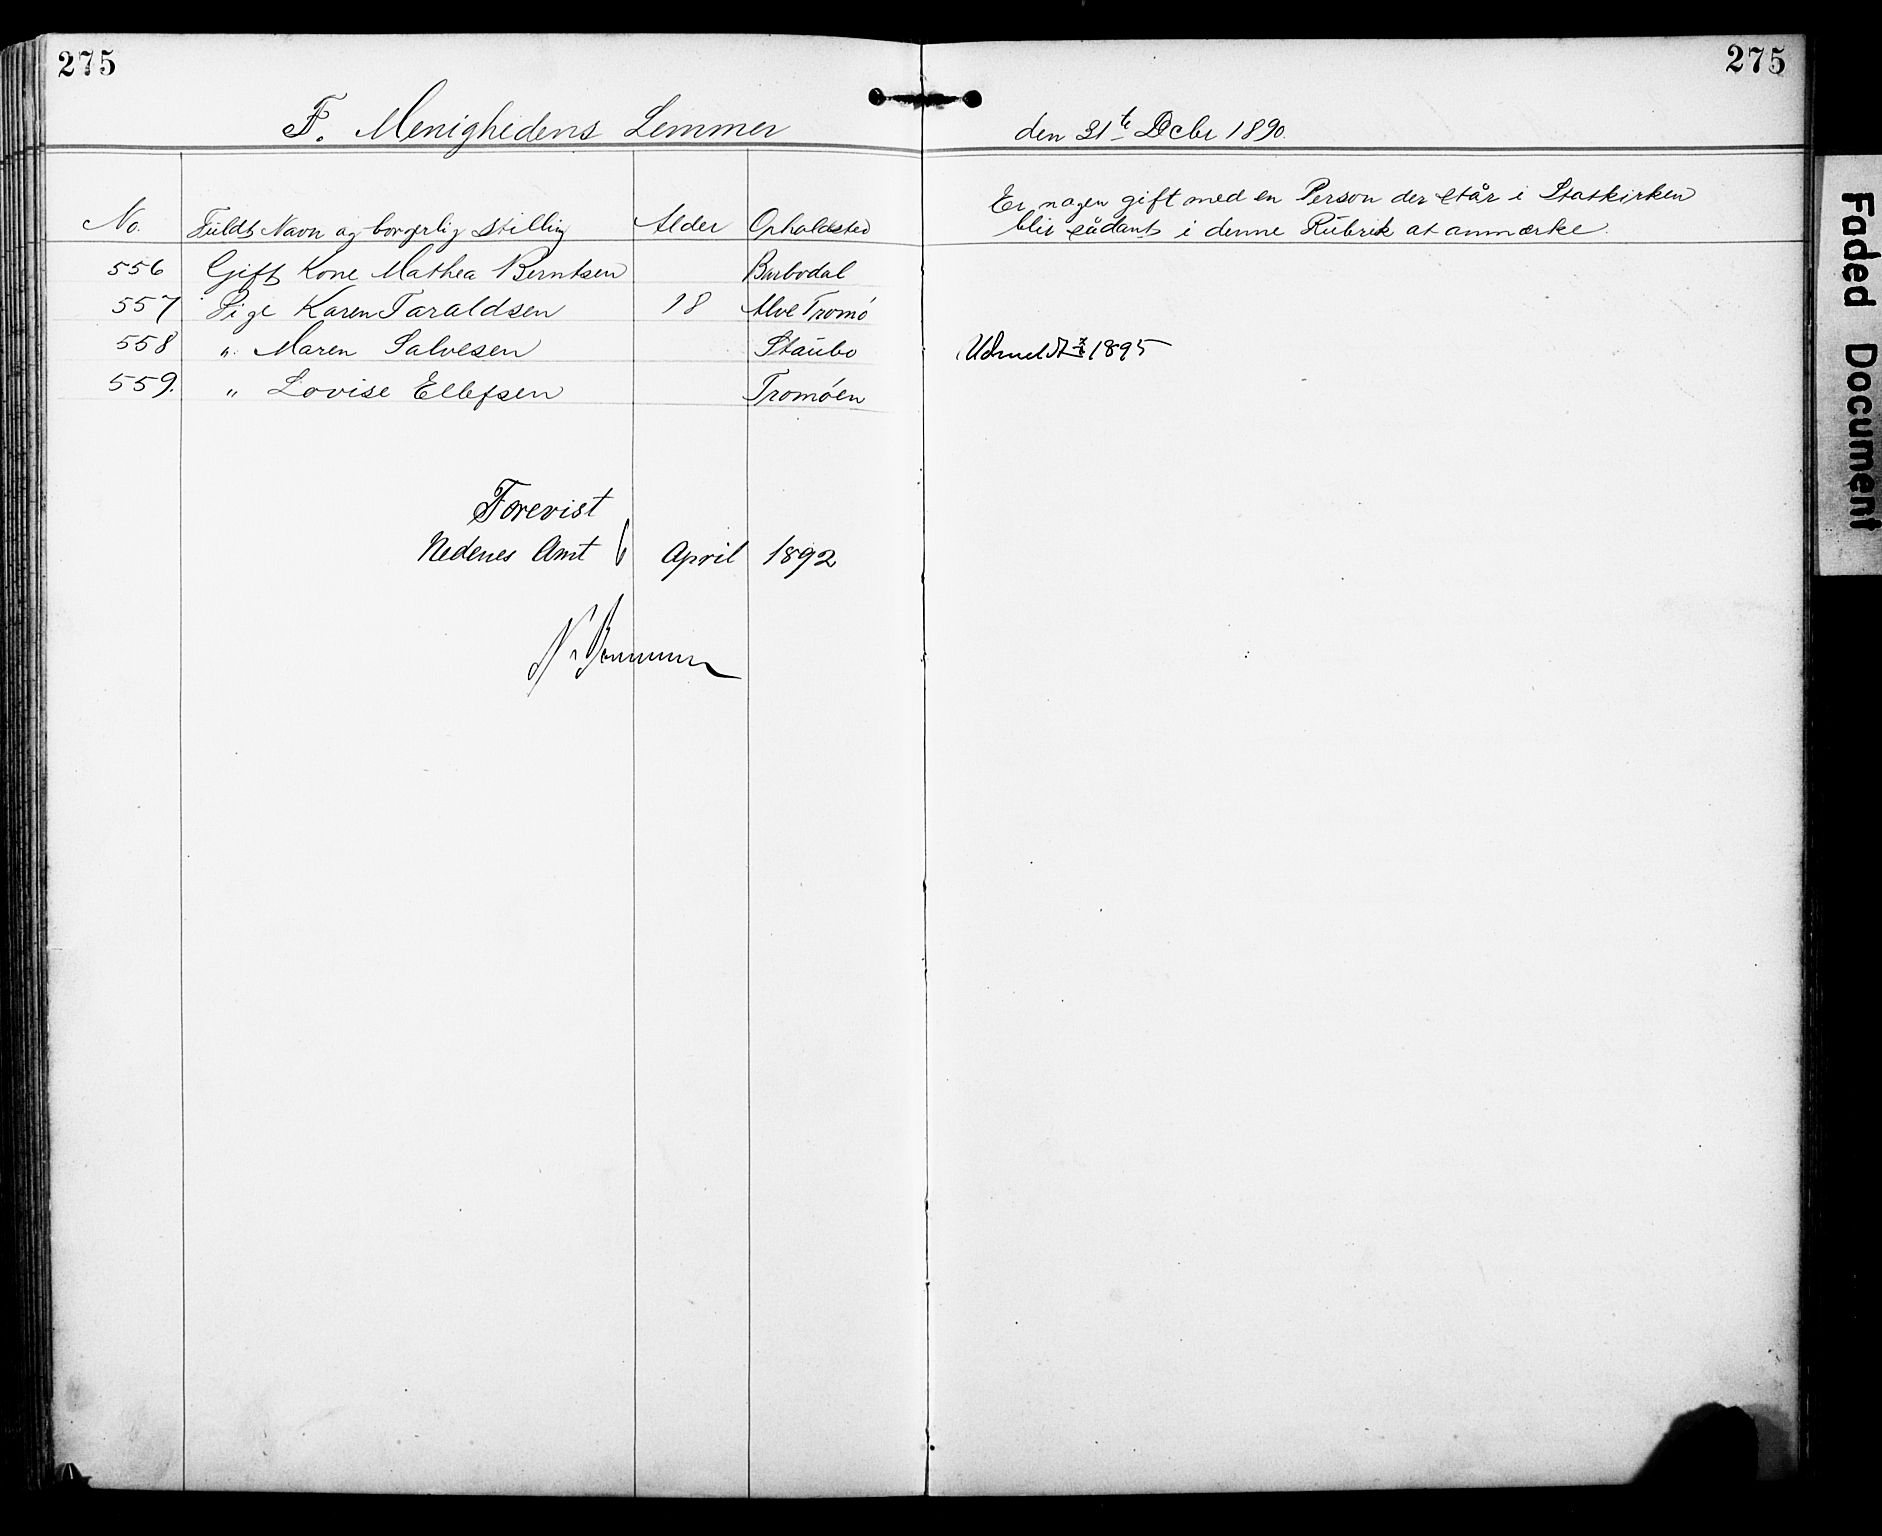 275
275
F. Menighedens Lemmer den 31te Decbr 1890.
No. Fuldt Navn og borgerlig Stilling Alder Opholdsted
Er nogen gift med en Person der står i Statskirken
blir sådant i denne Rubrik at anmærke.
556 Gift Kone Mathea Berntsen Barbodal
557 Pige Karen Taraldsen 18 Alve Tromø
558 " Maren Salvesen Staubo Udmeldt 1895
559. " Lovise Ellefsen Tromøen
Forevist
Nedenes Amt 6 April 1892
Faded Document